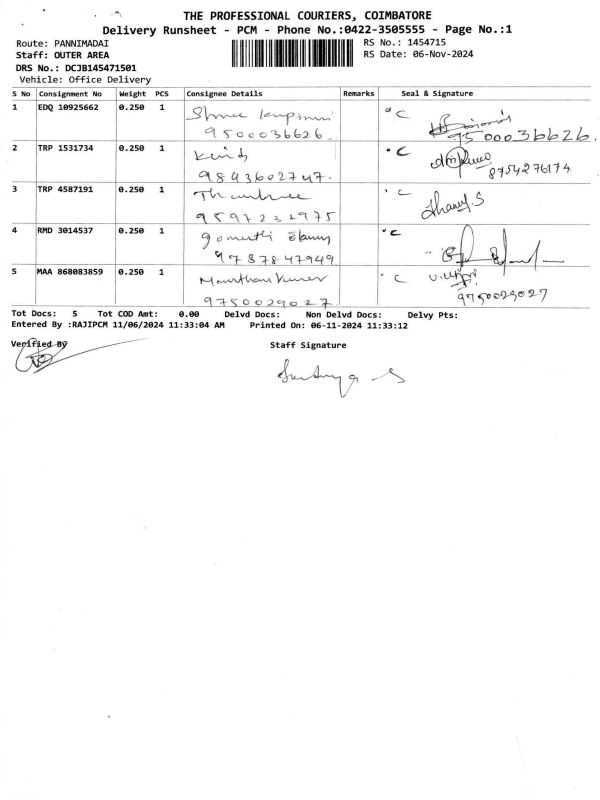 THE PROFESSIONAL COURIERS, COIMBATORE
Delivery Runsheet - PCM - Phone No.:0422-3505555 - Page No.:1
Route: PANNIMADAI RS No.: 1454715
Staff: OUTER AREA RS Date: 06-Nov-2024
DRS No.: DCJB145471501
Vehicle: Office Delivery
S No Consignment No Weight PCS Consignee Details Remarks Seal & Signature
1 EDQ 10925662 0.250 1 C
9500036626. 9500036626.
2 TRP 1531734 0.250 1 C
9843602747. 8754276174
3 TRP 4587191 0.250 1 C
9597232975
4 RMD 3014537 0.250 1 C
9787847949
5 MAA 868083859 0.250 1 C
9750029027 9750029027
Tot Docs: 5 Tot COD Amt: 0.00 Delvd Docs: Non Delvd Docs: Delvy Pts:
Entered By :RAJIPCM 11/06/2024 11:33:04 AM Printed On: 06-11-2024 11:33:12
Verified By Staff Signature